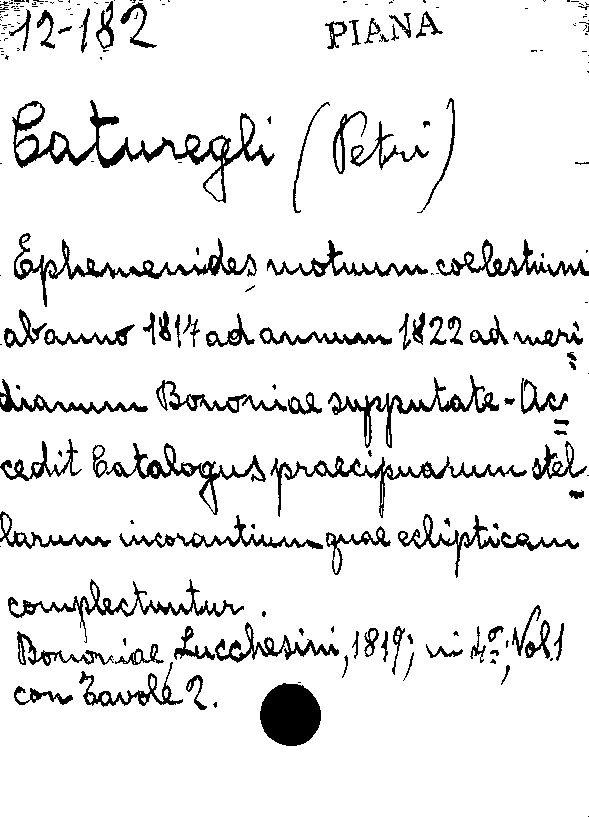 12-182 PIANA
Caturegli (Petri)
Ephemerides motuum coelestium
ab anno 1817 ad annum 1822 ad meri=
dianum Bononiae supputate - Ac=
cedit Catalogus praecipuarum stel-
larum inerrantium quae eclipticam
complectuntur.
Bononiae, Lucchesini, 1819; in 4º, Vol.1
con Tavole 2.